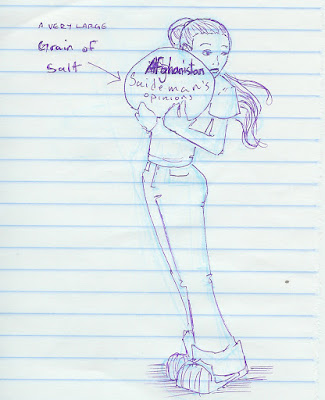 A VERY LARGE
Grain of
Salt
Afghanistan
Saideman's
opinions